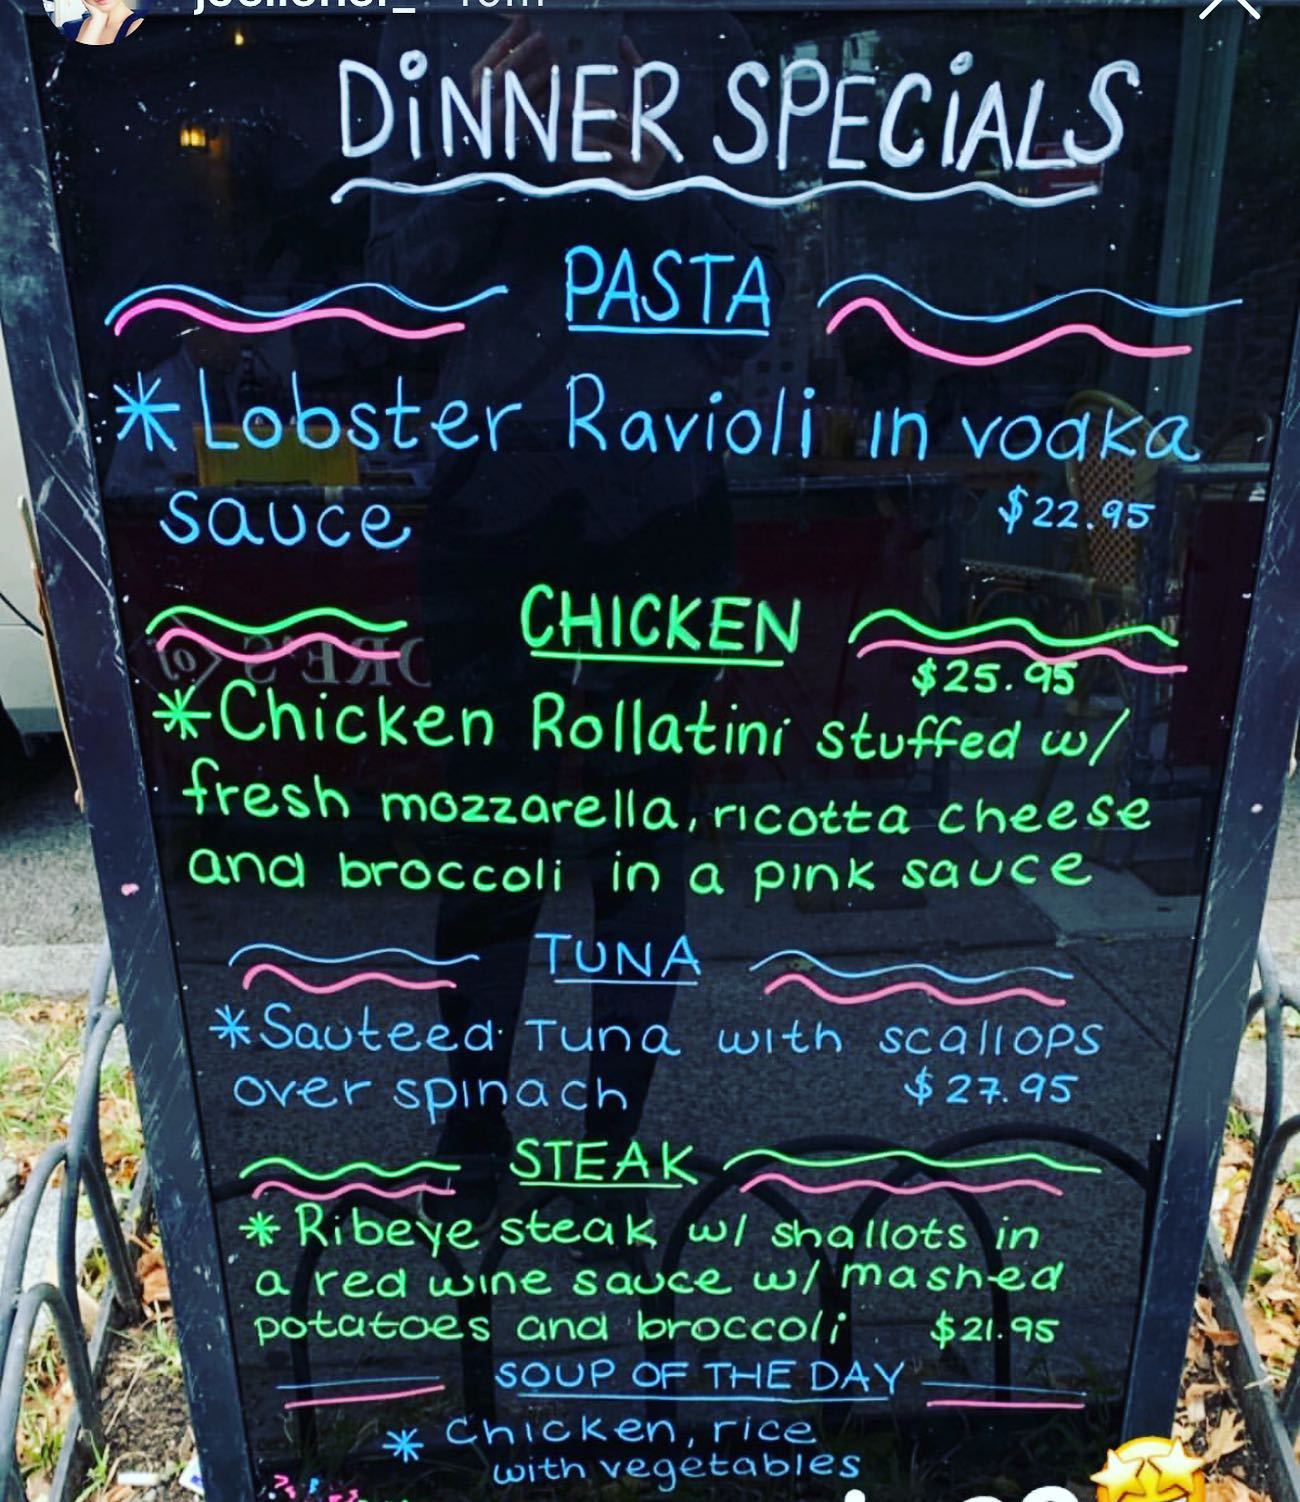 DINNER SPECIALS
PASTA
*Lobster Ravioli in vodka
sauce $22.95
CHICKEN
$25.95
*Chicken Rollatini stuffed w/
fresh mozzarella, ricotta cheese
and broccoli in a pink sauce
TUNA
*Sauteed Tuna with scallops
over spinach $27.95
STEAK
*Ribeye steak w/ shallots in
a red wine sauce w/ mashed
potatoes and broccoli $21.95
SOUP OF THE DAY
* Chicken, rice
with vegetables